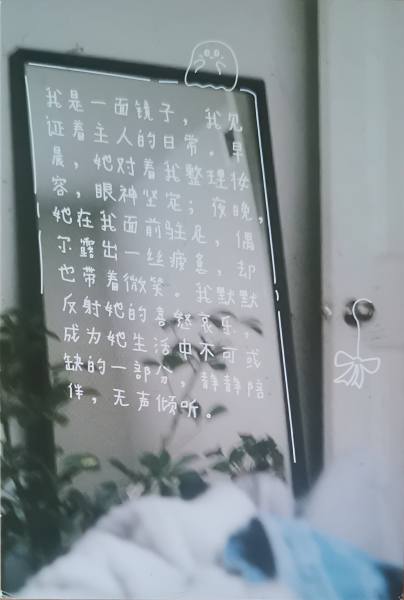 我是一面镜子，我见
证着主人的日常。早
晨，她对着我整理妆
容，眼神坚定；夜晚，
她在我面前驻足，偶
尔露出一丝疲惫，却
也带着微笑。我默默
反射她的喜怒哀乐，
成为她生活中不可或
缺的一部分，静静陪
伴，无声倾听。